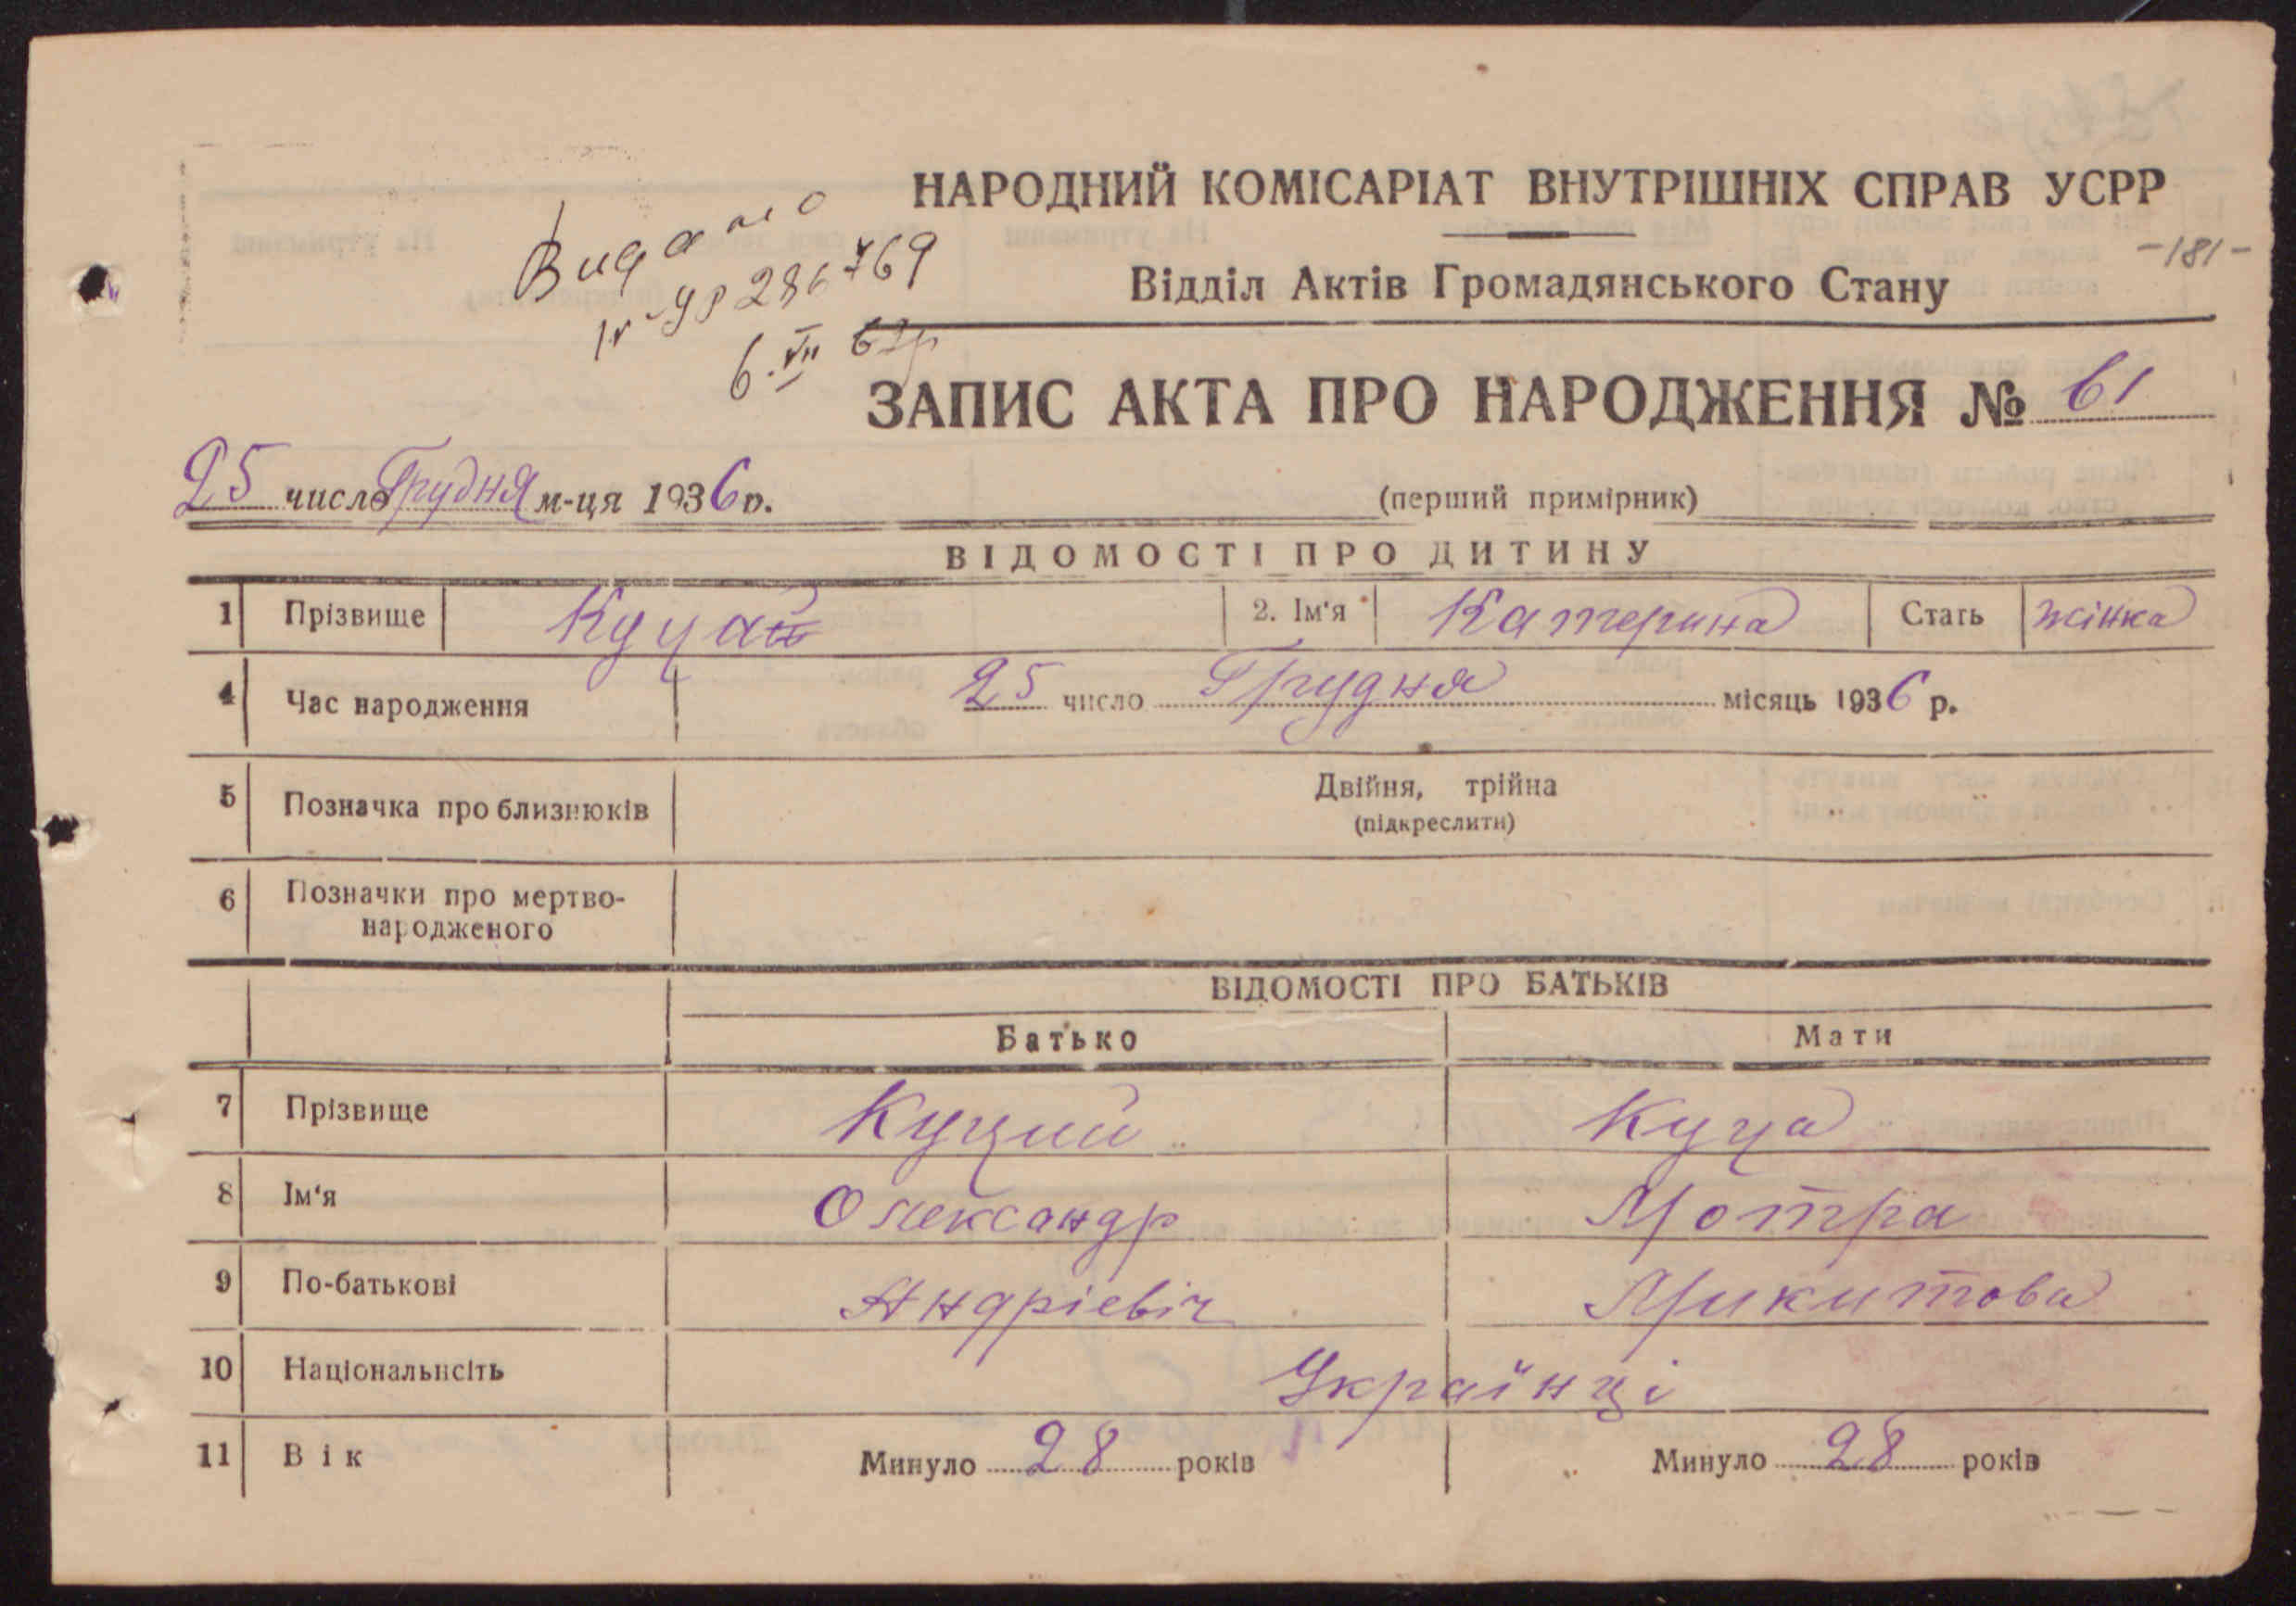 НАРОДНИЙ КОМІСАРІАТ ВНУТРІШНІХ СПРАВ УСРР
-181-
Відділ Актів Громадянського Стану
Видано
УР 286769
6.VII 62р
ЗАПИС АКТА ПРО НАРОДЖЕННЯ № 61
25 число Грудня м-ця 1936 р.
(перший примірник)
ВІДОМОСТІ ПРО ДИТИНУ
1 Прізвище Куцай 2. Ім'я Катерина Стать жінка
4 Час народження 25 число Грудня місяць 1936 р.
5 Позначка про близнюків Двійня, трійна
(підкреслити)
6 Позначки про мертво-
народженого
ВІДОМОСТІ ПРО БАТЬКІВ
Батько Мати
7 Прізвище Куций Куца
8 Ім'я Олександр Мотра
9 По-батькові Андріевіч Микитова
10 Національнсіть Українці
11 Вік Минуло 28 років Минуло 28 років